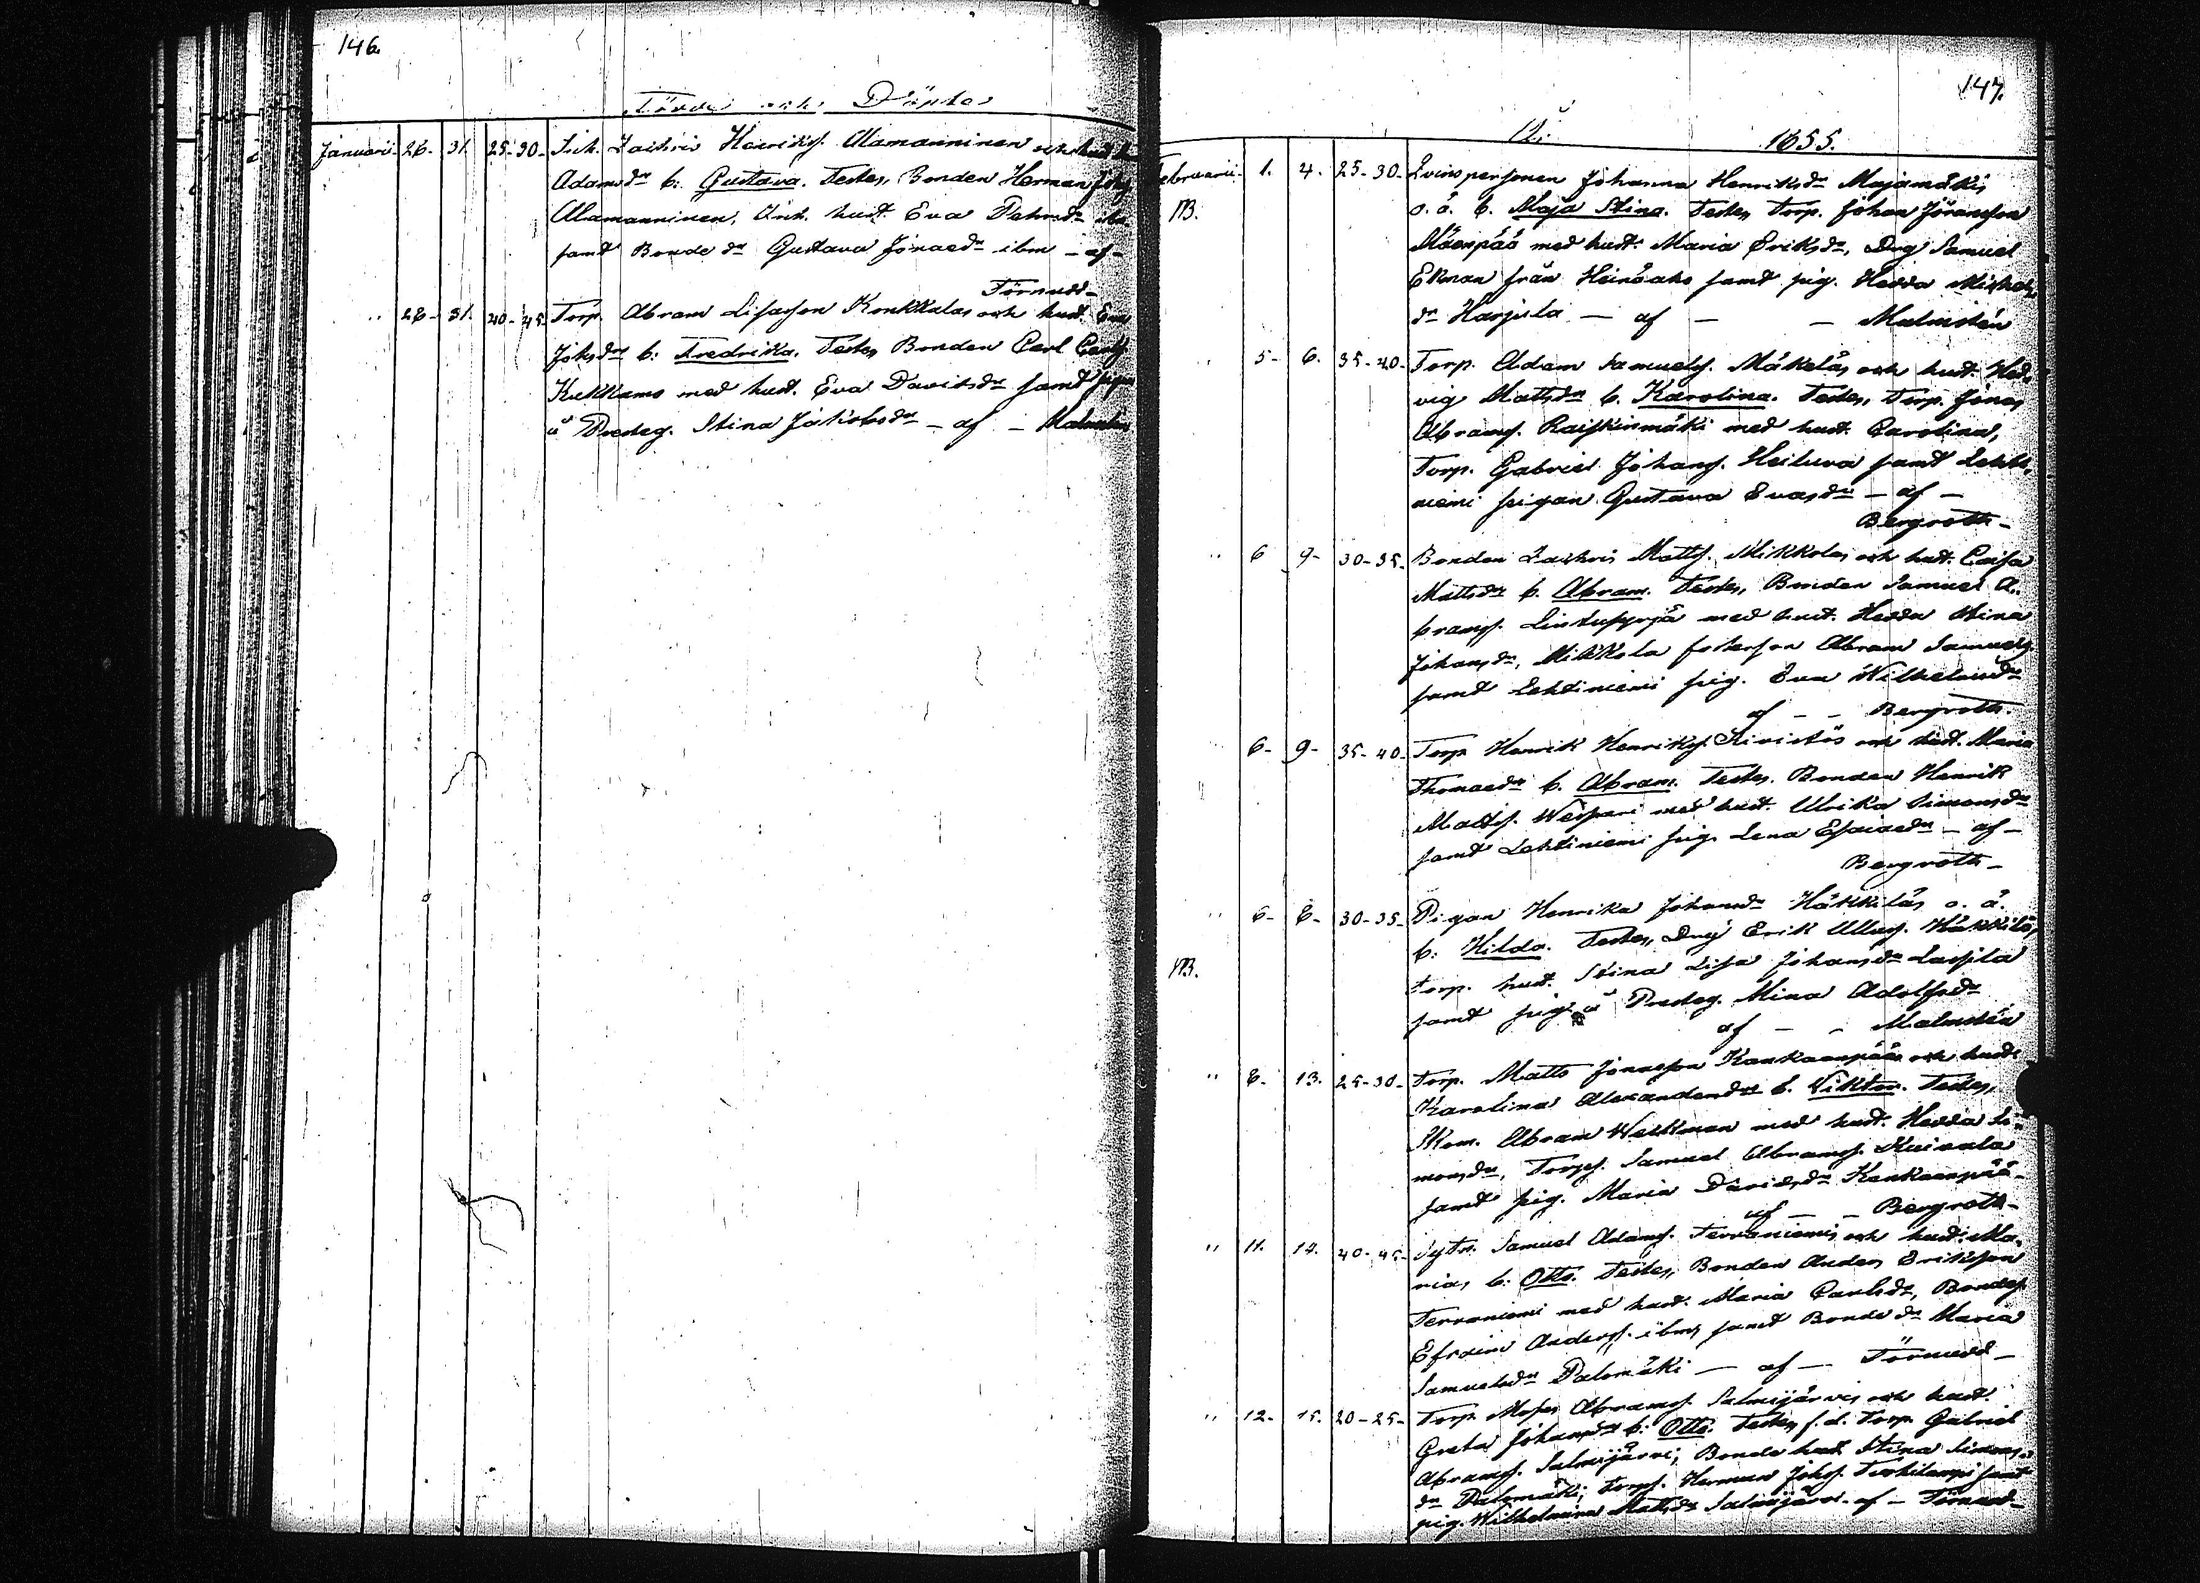 146.
Födde och Döpte
Januarii 26. 31. 25-30. Inh. Zachris Henriks. Alamanninen och hust.
Adamsdr b. Gustava. Testes, Bonden Herman Johs.
Alamanninen, Inh. hust. Eva
samt Bonde dr Gustava Jonaedr ibm - af -
Törnudd-
" 28- 31. 40-45. Torp. Abram Lisasson Konkkalas och hust. Eva
Johsdr b: Fredrika. Testes Bonden Carl Carls.
Kukkams med hust. Eva Davidsdr samt pigan
å Presteg. Stina Jakobsdr - af - Malmstén
147.
1855.
Februarii 1. 4. 25-30. Qvinspersonen Johanna Henriksdr Majamäkis
NB. o. ä. b. Maja Stina. Testes Torp. Johan Jöransson
Mäenpää med hust. Maria Eriksdr, Drg Samuel
Ekman från Heinäaho samt pig. Hedda Michels
dr Harjula - af - - Malmstén
" 5- 6. 35-40. Torp. Adam Samuels. Mäkeläs och hust. Hed-
vig Mattsdr b. Karolina. Testes, Torp. Jonas
Abrams. Raiskinmäki med hust. Carolina,
Torp. Gabriel Johans. Heiluva samt Lehti-
niemi pigan Gustava Evasdr - af -
Bergroth-
" 6 9- 30-35. Bonden Zachris Matts. Mikkolas och hust. Caisa
Mattsdr b. Abram. Testes, Bonden Samuel A-
brams. Lintupyrjä med hust. Hedda Stina
Johansdr, Mikkola fosterson Abram Samuels.
samt Lehtiniemi pig. Eva Wilhelmsdr
af - - Bergroth.
6- 9- 35-40. Torp. Henrik Henriks. Kivistös och hust. Maria
Thomaedr b. Abram. Testes. Bonden Henrik
Matts. Wespari med hust. Ulrika Simonsdr
samt Lehtiniemi pig. Lena Esaiaedr - af -
Bergroth-
" 6- 6- 30-35. Pigan Henrika Johansdr Häkkiläs o. ä.
b. Hilda. Testes, Drg Erik Ullas. Häkkilä,
NB. torp. hust. Stina Lisa Johansdr Lassila
samt pig. å Presteg. Mina Adolfsdr
af - - Malmstén
" 8. 13. 25-30. Torp. Matts Jonasson Kankaanpääs och hust.
Karolina Alexandersdr b. Viktor. Testes,
Skom. Abram Werkman med hust. Hedda Si-
monsdr, Torps. Samuel Abrams. Kuivala
samt pig. Maria Davidsdr Kankaanpää
af - - Bergroth-
" 11. 14. 40-45. Sytn. Samuel Adams. Tervaniemis och hust. Ma-
ria, b: Otto. Testes, Bonden Anders Eriksson
Tervaniemi med hust. Maria Carlsdr, Bondes.
Efraim Anders. ibm, samt Bonde dr Maria
Samuelsdr Palomäki - af - Törnudd-
" 12- 15. 20-25- Torp. Moses Abrams. Salmijärvis och hust.
Greta Johansdr b: Otto. Testes, f.d. Torp. Gabriel
Abrams. Salmijärvi, Bonde hust. Stina Simons-
dr Palomäki, torps. Herman Johs. samt
pig. Wilhelmina Mattsdr Salmijärvi - af - Törnudd-